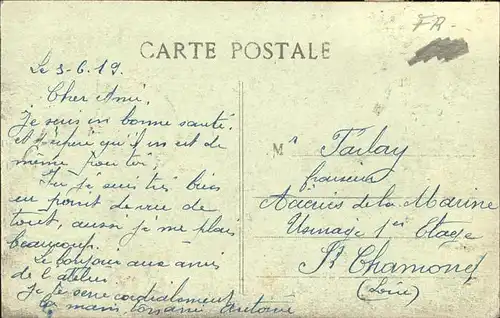 FR-
CARTE POSTALE
Le 3-6.19.
Cher Ami,
Je suis en bonne santé,
et espère qu'il en est de
même pour toi.
Ici je suis très bien
au point de vue de
tout, aussi je me plais
beaucoup.
Le bonjour aux amis
de l'atelier.
Je te serre cordialement
la main Antoine
Mr Farlay
fraiseur
Aciéries de la Marine
Usinage 1er Etage
St Chamond
(Loire)